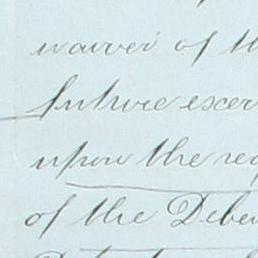 waiver of th
future exer
upon the re
of the Debe